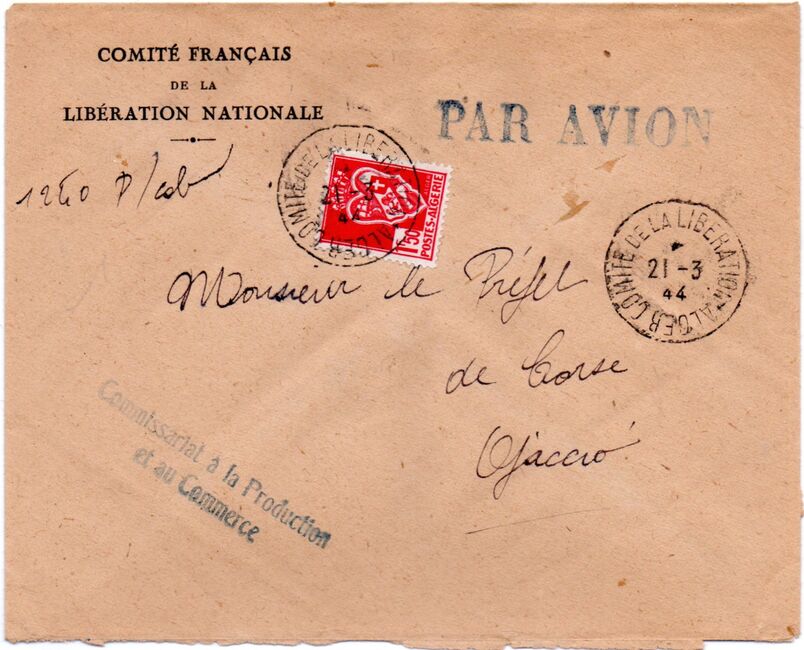 COMITÉ FRANÇAIS
DE LA
LIBÉRATION NATIONALE
PAR AVION
COMITE DE LA LIBERATION
21 -3
44
ALGER
1f50
POSTES-ALGERIE
COMITE DE LA LIBERATION
21 -3
44
ALGER
Monsieur le Préfet
de Corse
Ajaccio
Commissariat à la Production
et au Commerce